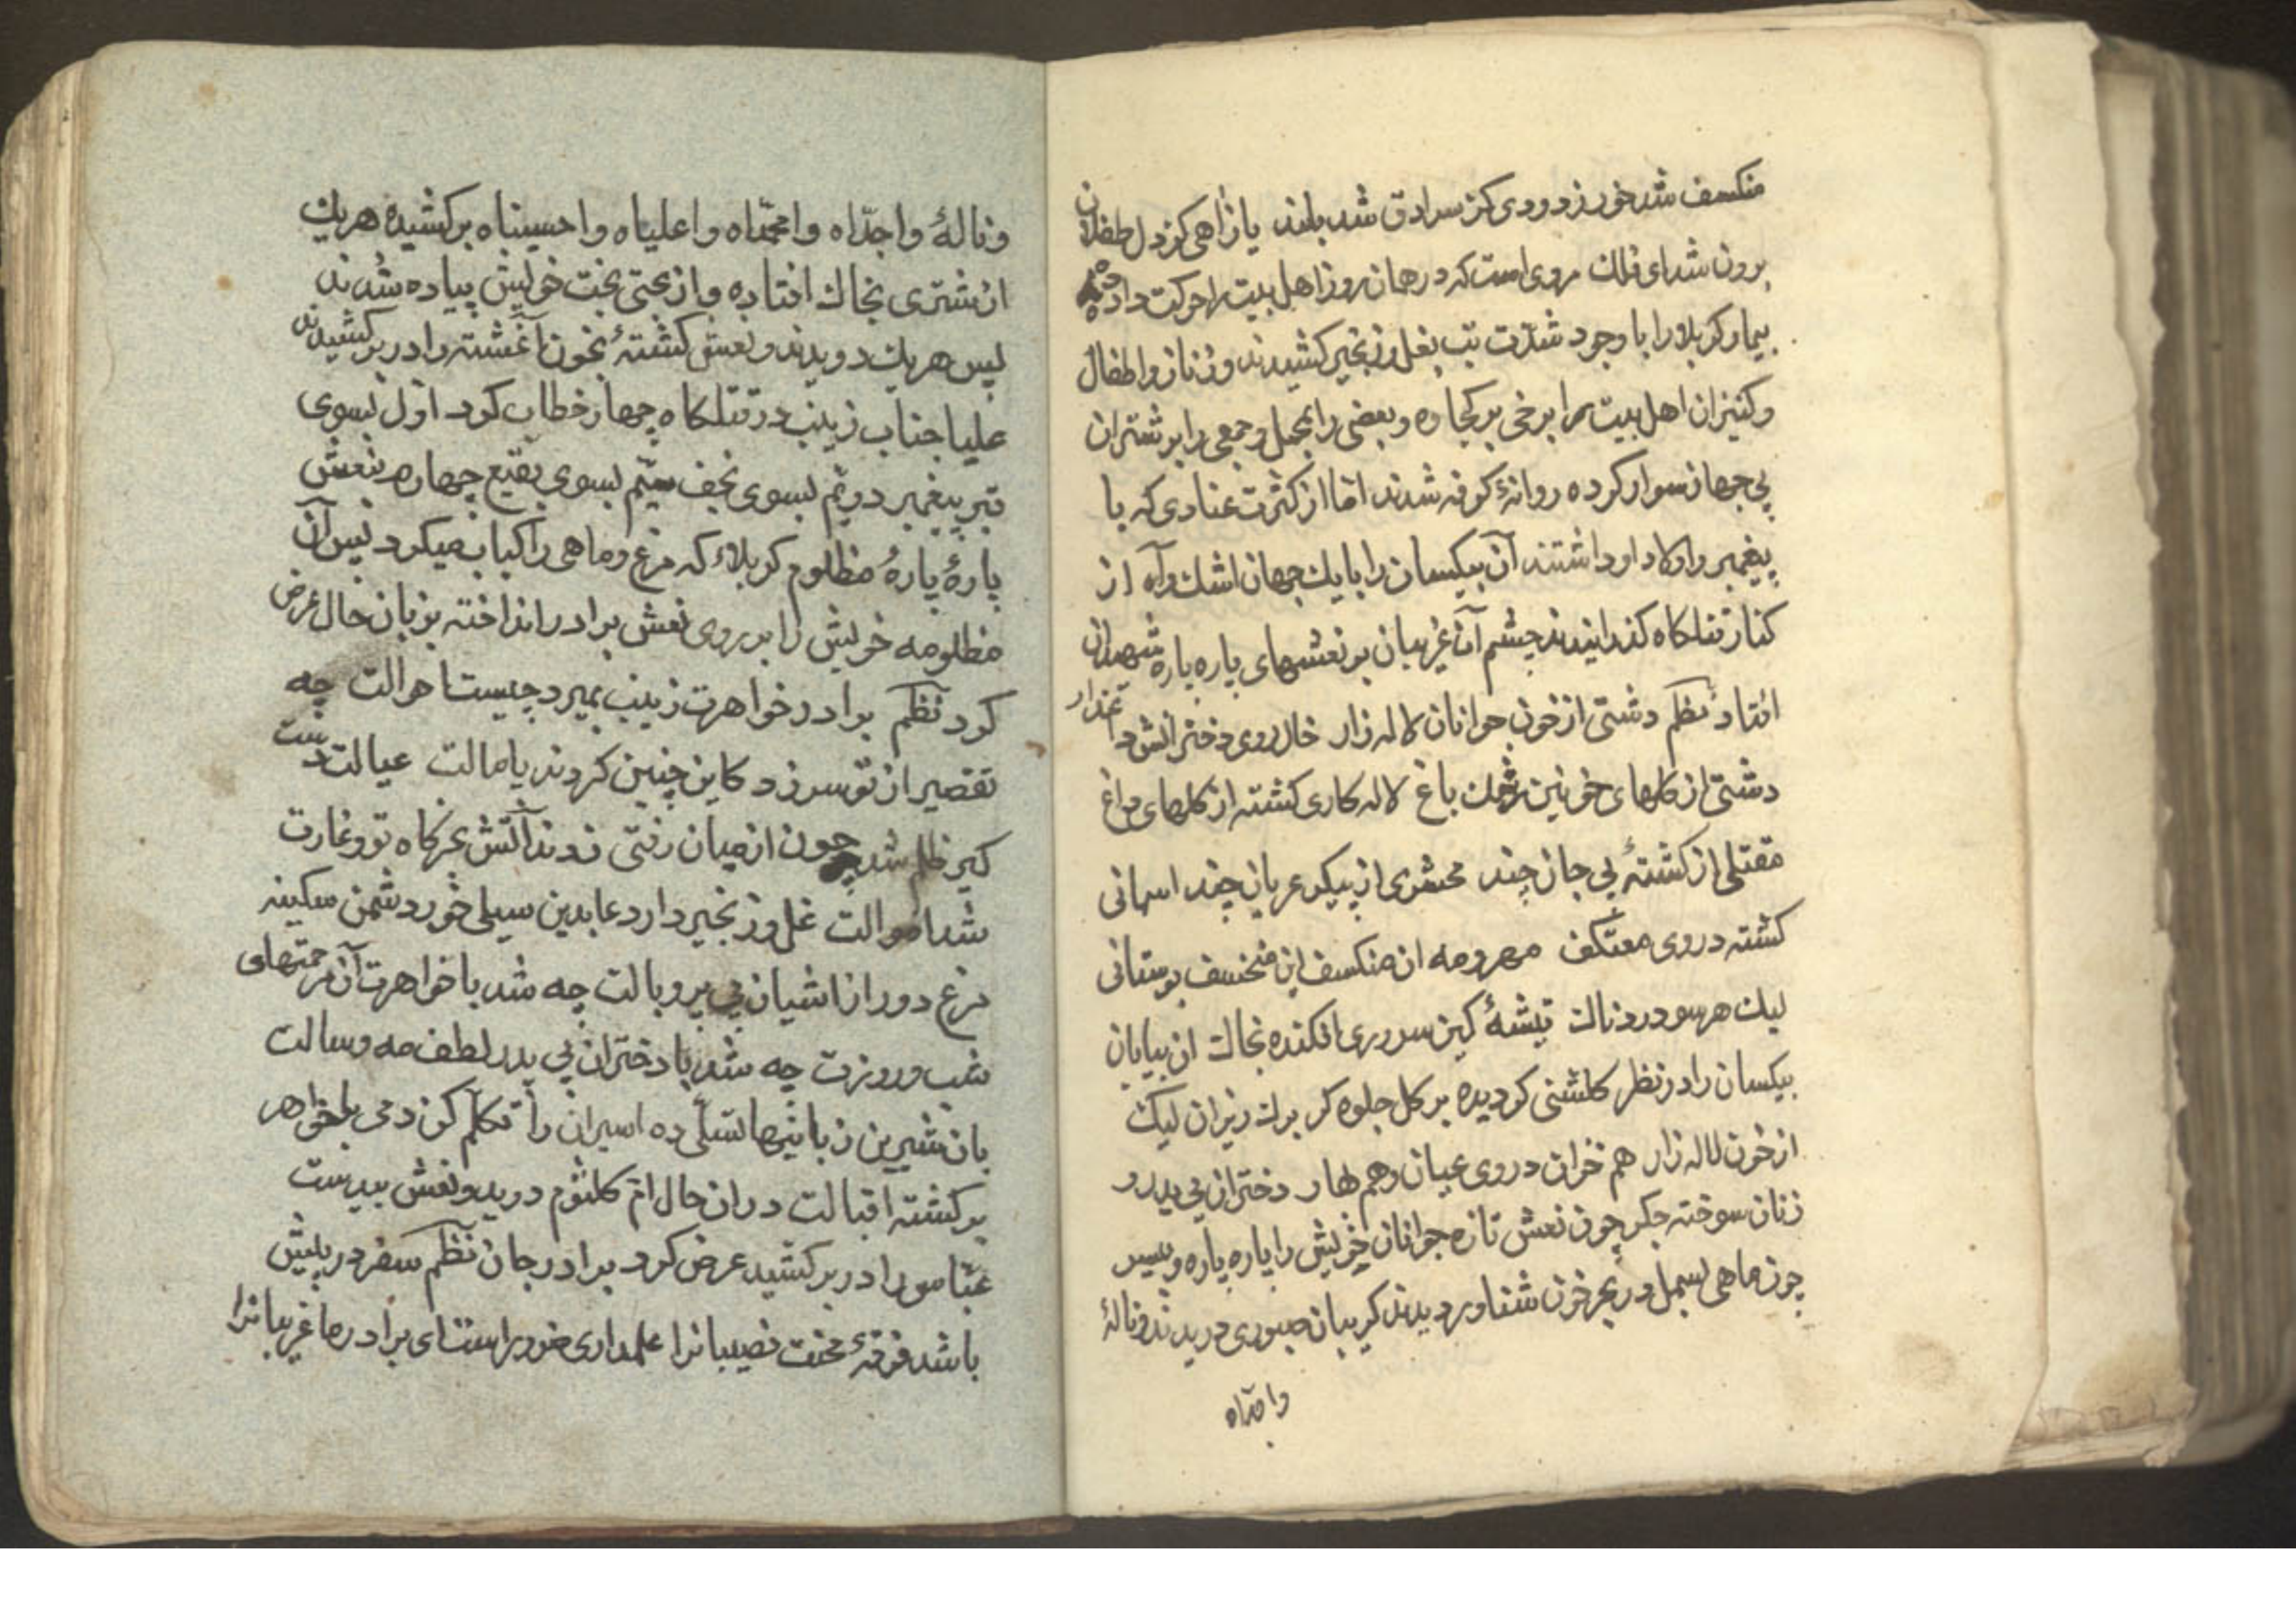 منکسف شد خور ز دودی کز سرادق شد بلند یا ز آهی کز دل طفلان
برون شد ای فلک مرویست که در همان روز اهل بیت را حرکت داده
بیمار کربلا را با وجود شدّت تب بغل و زنجیر کشیدند و زنان و اطفال
و کنیزان اهل بیت را برخی بر کجاوه و بعضی را بمحمل و جمعی را بر شتران
بی جهاز سوار کرده روانهٔ کوفه شدند امّا از کثرت عنادی که با
پیغمبر و اولاد او داشتند آن بیکسان را با یک جهان اشک و آه از
کنار قتلگاه گذرانیدند چشم آن غریبان بر نعشهای پاره پاره شهیدان
افتاد نظم دشتی از خون جوانان لاله زار خال روی دخترانش داغدار
دشتی از گلهای خونین رشک باغ لاله کاری کشته از گلهای داغ
مقتلی از کشتهٔ بی جان چند محشری از پیکر عریان چند آسمانی
کشته در وی معتکف مهر و مه آن منکسف این منخسف بوستانی
لیک هر سو دردناک تیشهٔ کین سروری افکنده بخاک آن بیابان
بیکسان را در نظر گلشنی گردیده بر گل جلوه گر برک ریزان لیک
از خون لاله زار هم خزان در وی عیان و هم بهار دختران بی پدر و
زنان سوخته جگر چون نعش تازه جوانان خویش را پاره پاره و بیسر
چون ماهی بسمل در بحر خون شناور دیدند گریبان صبوری دریدند و نالهٔ
و نالهٔ واجدّاه وا محمّداه وا علیاه وا حسیناه برکشیده هریک
از شتری بخاک افتاده و از بختی بخت خویش پیاده شدند
پس هریک دویدند و نعش کشتهٔ بخون آغشته را در بر کشیدند
علیا جناب زینب در قتلگاه چهار خطاب کرد اول بسوی
قبر پیغمبر دویّم بسوی نجف سیّم بسوی بقیع چهارم بنعش
پارهٔ پارهٔ مظلوم کربلاء که مرغ و ماهی را کباب میکرد پس آن
مظلومه خویش را بر روی نعش برادر انداخته بزبان حال عرض
کرد نظم برادر خواهرت زینب بمیرد چیست احوالت چه
تقصیر از تو سر زد کاین چنین کردند پامالت عیالت
کیر چون از میان رفتی زدند آتش بخرگاه تو و غارت
شد اموالت غل و زنجیر دارد عابدین سیلی خورد شمن سکینه
مرغ دور از آشیان بی پر و بالت چه شد با خواهرت آن مرحمتهای
شب و روزت چه شد با دختران بی پدر لطف مه و سالت
بآن شیرین زبانیها تسلّی ده اسیران را تکلّم کن دمی با خواهر
برگشته اقبالت در آن حال امّ کلثوم دوید و نعش بیدست
عبّاس را در بر کشید عرض کرد برادر جان نظم سفر در پیش
باشد فرقهٔ محنت نصیبانرا علمداری ضرور است ای برادر ما غریبانرا